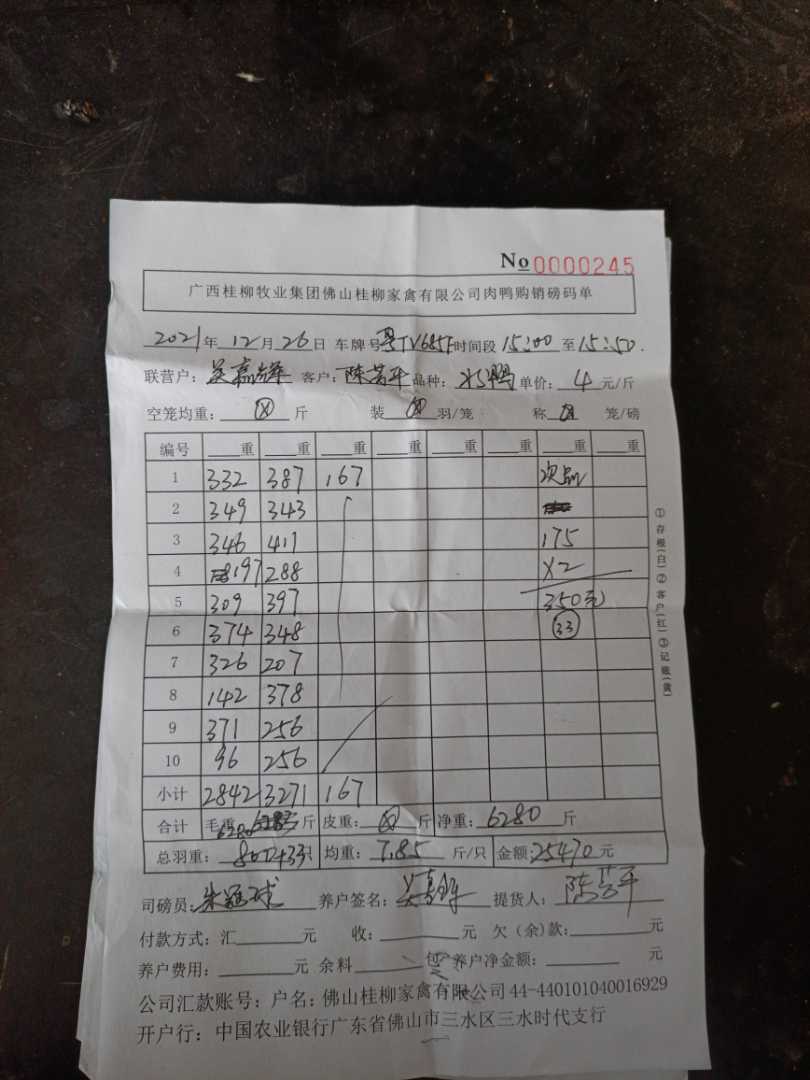 No 0000245
广西桂柳牧业集团佛山桂柳家禽有限公司肉鸭购销磅码单
2021年 12月 26日 车牌号 粤TV685F 时间段 15:00 至 15:50.
联营户: 吴嘉锋 客户: 陈芳平 品种: 水鸭 单价: 4 元/斤
空笼均重: 斤 装 羽/笼 称 笼/磅
编号 重 重 重 重 重 重 重 重
1 332 387 167 次品
2 349 343
3 346 411 175
4 197 288 X2
5 309 397 350元
6 374 348 33
7 326 207
8 142 378
9 371 256
10 96 256
小计 2842 3271 167
合计 毛重: 6280 斤 皮重: 斤 净重: 6280 斤
总羽重: 800+33只 均重: 7.85 斤/只 金额: 25470 元
司磅员: 养户签名: 吴嘉锋 提货人: 陈芳平
付款方式: 汇 元 收: 元 欠(余)款: 元
养户费用: 元 余料 包 养户净金额: 元
公司汇款账号: 户名: 佛山桂柳家禽有限公司 44-440101040016929
开户行: 中国农业银行广东省佛山市三水区三水时代支行
①存根(白)②客户(红)③记账(黄)